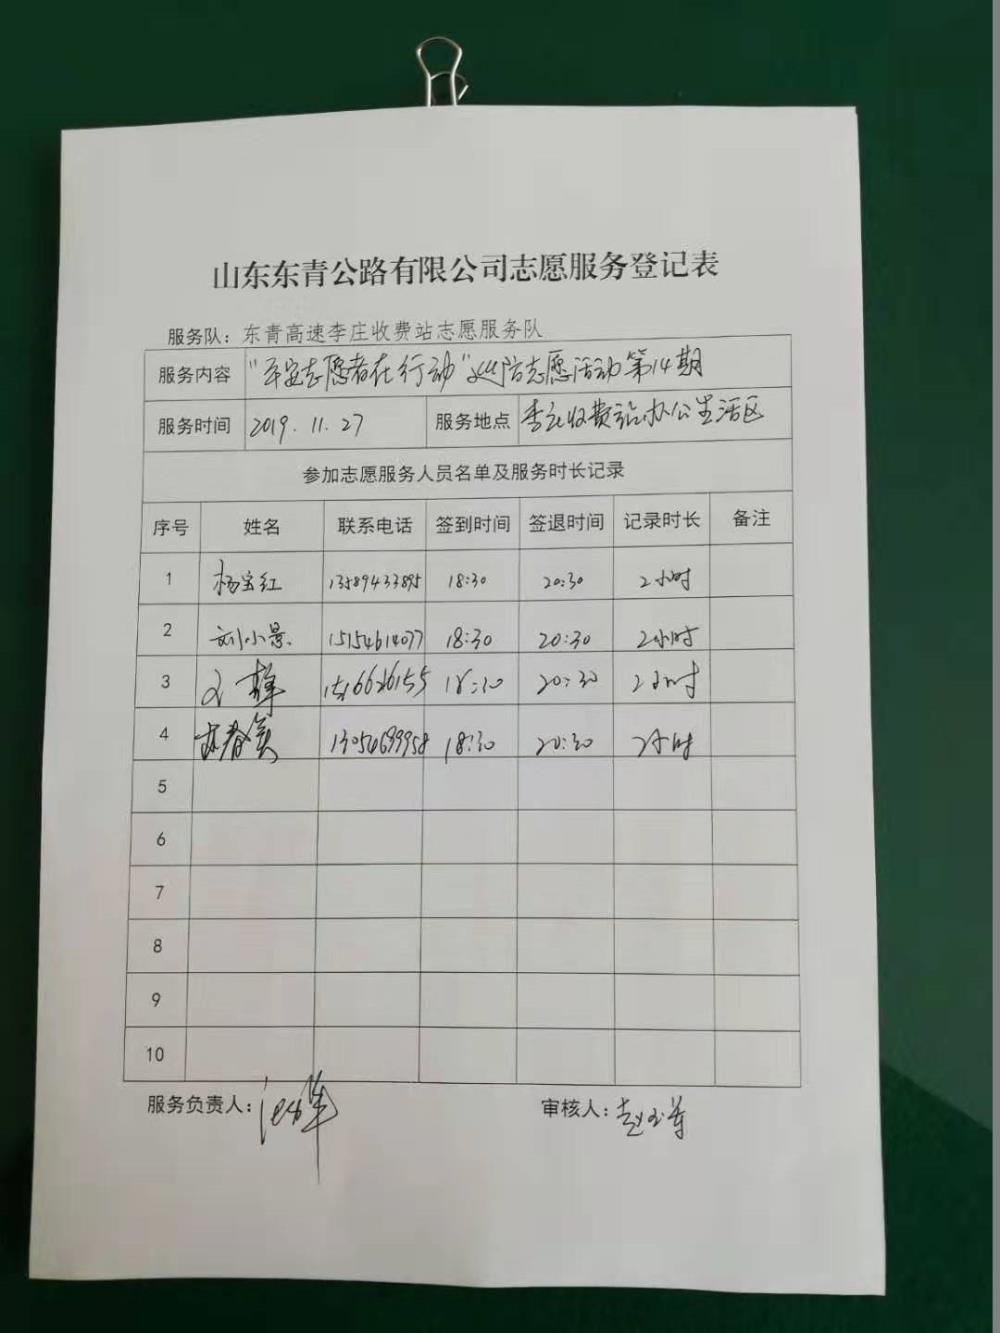 山东东青公路有限公司志愿服务登记表
服务队：东青高速李庄收费站志愿服务队
服务内容 "平安志愿者在行动"巡防志愿活动第14期
服务时间 2019.11.27 服务地点 李庄收费站办公生活区
参加志愿服务人员名单及服务时长记录
序号 姓名 联系电话 签到时间 签退时间 记录时长 备注
1 杨宝红 13589433895 18:30 20:30 2小时
2 刘小景 15154614077 18:30 20:30 2小时
3 18:30 20:30 2小时
4 13054699958 18:30 20:30 2小时
5
6
7
8
9
10
服务负责人： 审核人：